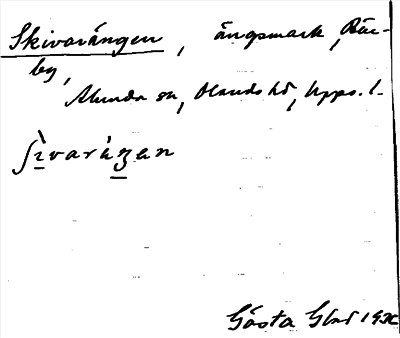 Skivarängen, ängsmark, Rär-
by,
Alunda sn, Olands hd, Upps. l.
ʃìvaráʒan
Gösta